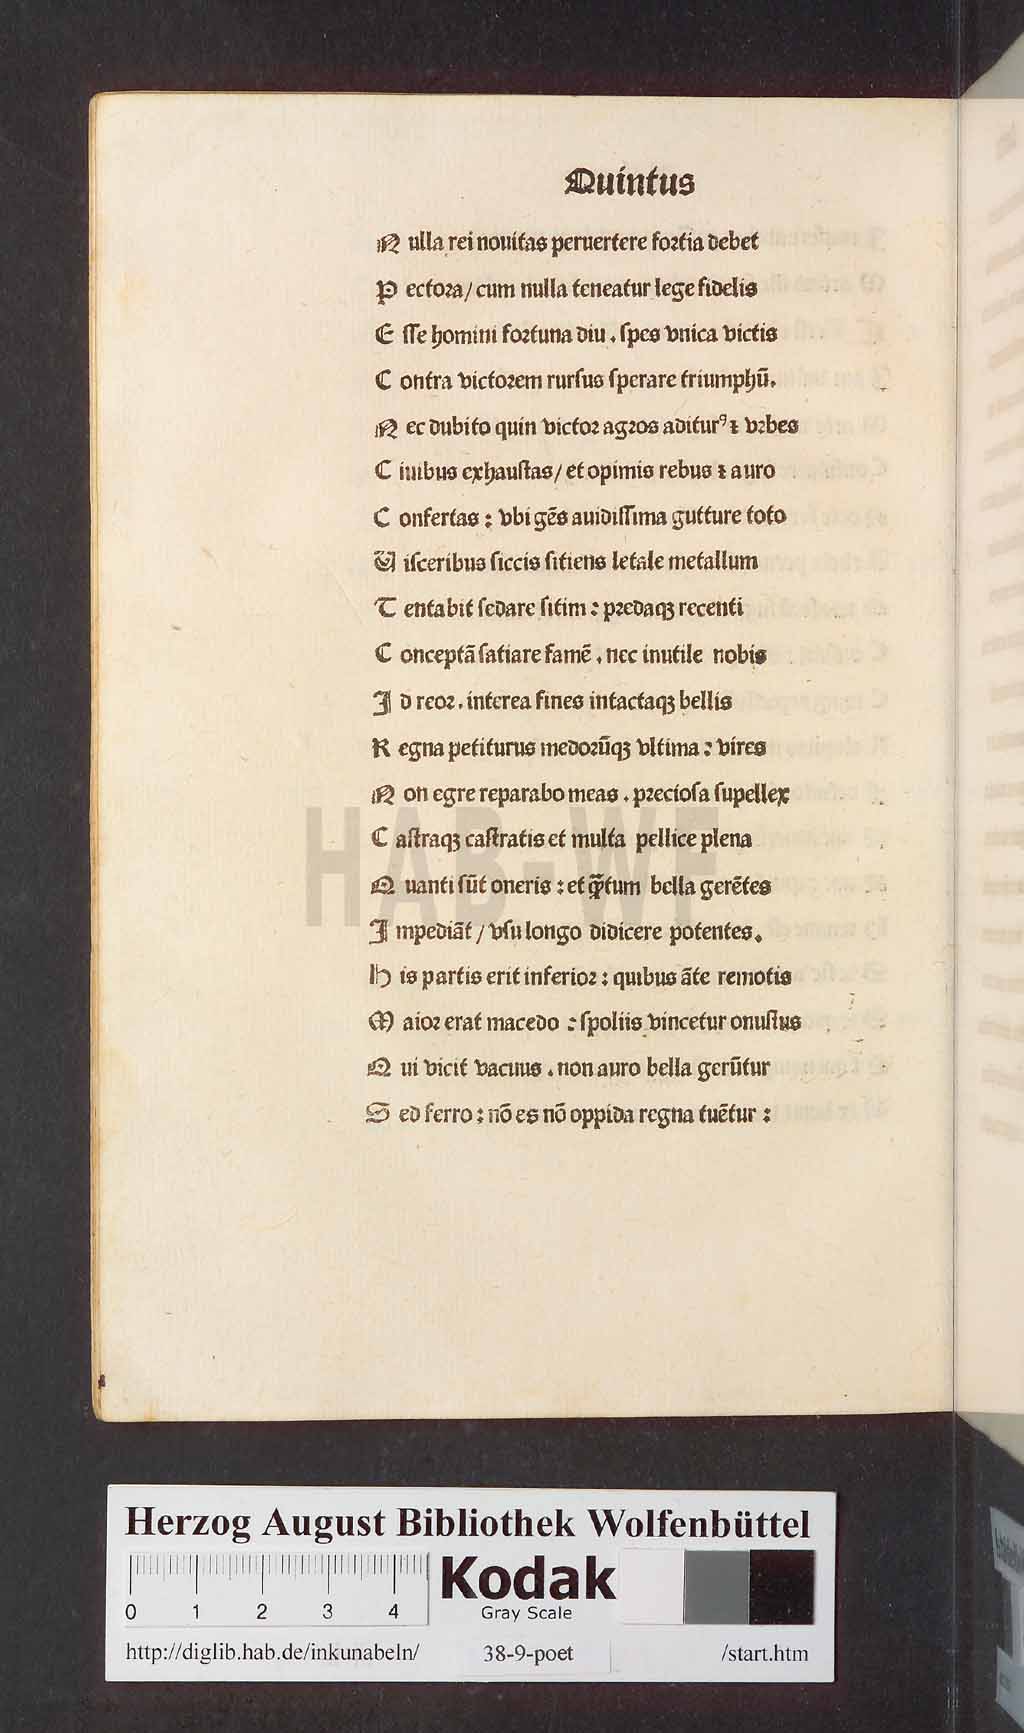 Quintus
N ulla rei nouitas peruertere fortia debet
P ectora / cum nulla teneatur lege fidelis
E sse homini fortuna diu . spes vnica victis
C ontra victorem rursus sperare triumphū.
N ec dubito quin victor agros aditurꝰ ⁊ vrbes
C iuibus exhaustas / et opimis rebus ⁊ auro
C onfertas : vbi gēs auidissima gutture toto
V isceribus siccis sitiens letale metallum
T entabit sedare sitim : predaqꝫ recenti
C onceptā satiare famē . nec inutile nobis
I d reor . interea fines intactaqꝫ bellis
R egna petiturus medorūqꝫ vltima : vires
N on egre reparabo meas . preciosa supellex
C astraqꝫ castratis et multa pellice plena
Q uanti sūt oneris : et q̄tum bella gerētes
I mpediāt / vsu longo didicere potentes.
H is partis erit inferior : quibus āte remotis
M aior erat macedo : spoliis vincetur onustus
Q ui vicit vacuus . non auro bella gerūtur
S ed ferro : nō es nō oppida regna tuētur :
HAB-WF
Herzog August Bibliothek Wolfenbüttel
0 1 2 3 4
Kodak
Gray Scale
http://diglib.hab.de/inkunabeln/ 38-9-poet /start.htm